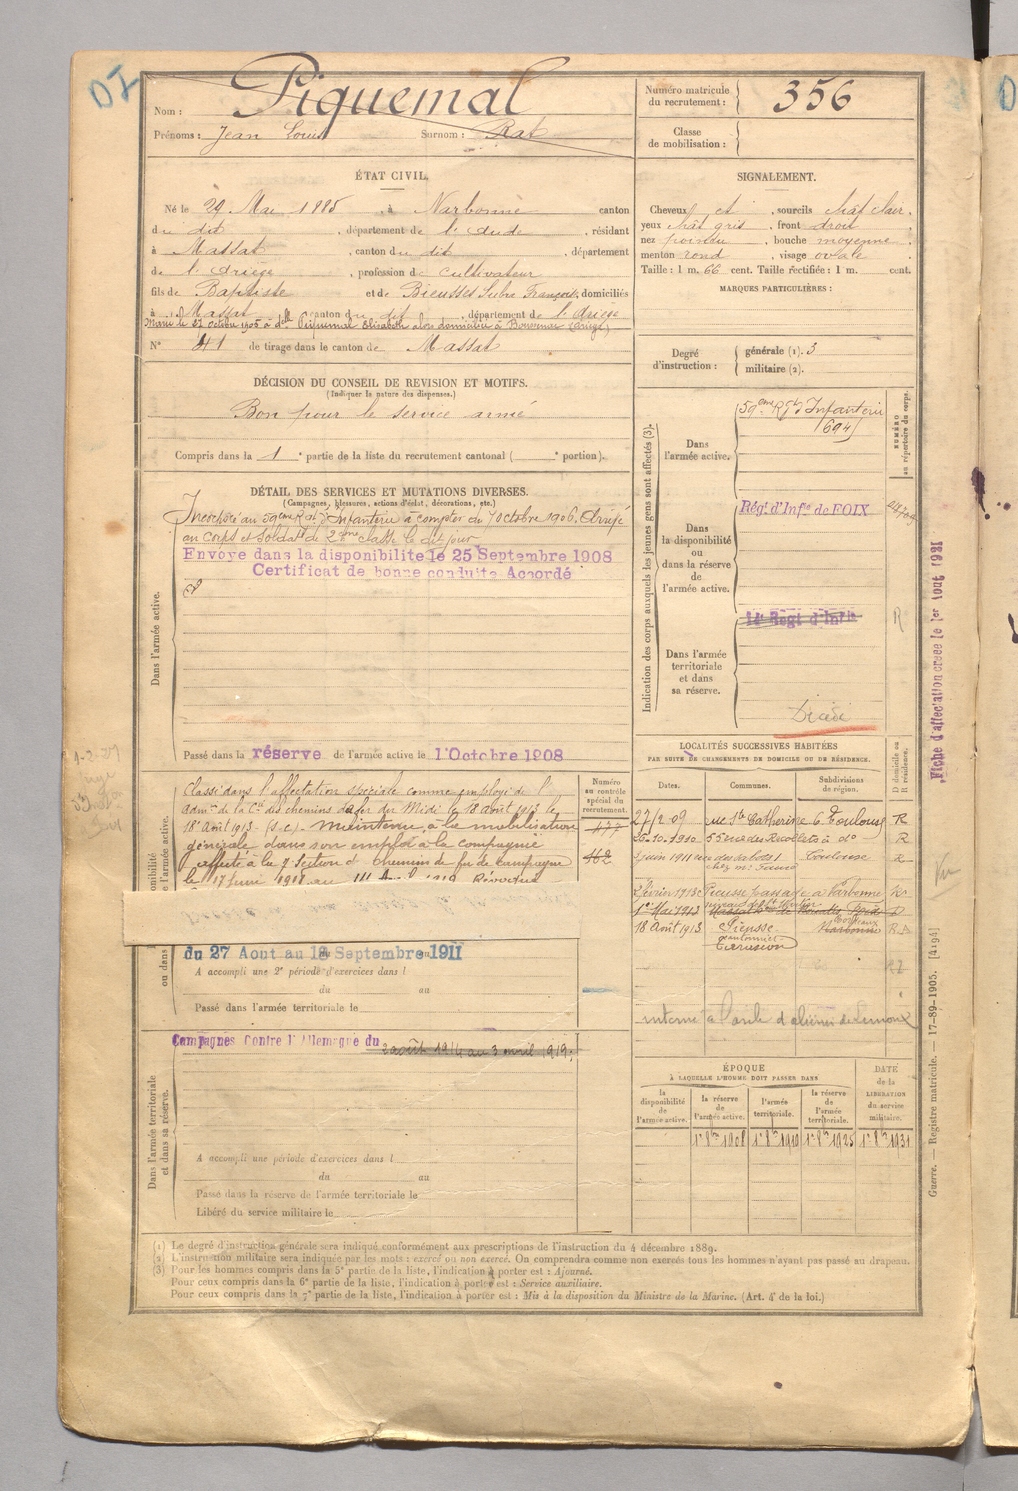 Nom : Piquemal
Prénoms : Jean Louis Surnom : Rat
Numéro matricule du recrutement : 356
Classe de mobilisation :
ÉTAT CIVIL.
Né le 29 Mai 1885, à Narbonne canton
du dit, département de l'Aude, résidant
à Massat, canton du dit, département
de l'Ariège, profession de cultivateur
fils de Baptiste et de Bieusses Subra Françoise, domiciliés
à Massat canton du dit, département de l'Ariège
Marié le 27 octobre 1905 à dlle Piquemal Elisabeth alors domiciliée à (Ariège)
N° 41 de tirage dans le canton de Massat
SIGNALEMENT.
Cheveux ct, sourcils chât clair
yeux chât gris, front droit
nez pointu, bouche moyenne
menton rond, visage ovale
Taille : 1 m. 66 cent. Taille rectifiée : 1 m. cent.
MARQUES PARTICULIÈRES :
Degré d'instruction : générale (1). 3
militaire (2).
DÉCISION DU CONSEIL DE REVISION ET MOTIFS.
(Indiquer la nature des dispenses.)
Bon pour le service armé
Compris dans la 1e partie de la liste du recrutement cantonal ( e portion).
DÉTAIL DES SERVICES ET MUTATIONS DIVERSES.
(Campagnes, blessures, actions d'éclat, décorations, etc.)
Incorporé au 59ème Rgt d'Infanterie à compter du 7 octobre 1906, Arrivé
au corps et soldat de 2ème classe le dit jour
Envoyé dans la disponibilité le 25 Septembre 1908
Certificat de bonne conduite Accordé
Dans l'armée active.
Passé dans la réserve de l'armée active le 1 Octobre 1908
Indication des corps auxquels les jeunes gens sont affectés (3).
NUMÉRO au répertoire du corps.
Dans l'armée active.
59ème Rgt d'Infanterie
694
Dans la disponibilité ou dans la réserve de l'armée active.
Régt d'Infie de FOIX
14e Régt d'Infie
R
Dans l'armée territoriale et dans sa réserve.
Décédé
Fiche d'affectation créée le 1er Août 1921
Classé dans l'affectation spéciale comme employé de l'
Admon de la Cie des chemins de fer du Midi le 18 Août 1913 le
18 Août 1913 (s.c.) Maintenu à la mobilisation
générale dans son emploi à la compagnie
affecté à la 7 Section de Chemins de fer de campagne
le 17 Juin 1918 au
Numéro au contrôle spécial du recrutement.
477
462
du 27 Aout au 12 Septembre 1911
A accompli une 2e période d'exercices dans l
du au
Passé dans l'armée territoriale le
LOCALITÉS SUCCESSIVES HABITÉES
PAR SUITE DE CHANGEMENTS DE DOMICILE OU DE RÉSIDENCE.
Dates. Communes. Subdivisions de région. D domicile ou R résidence.
27/2 09 rue Ste Catherine 6 Toulouse R
26-10-1910 55 rue des Récollets à do R
2 juin 1911 Toulouse R
2 février 1913 Pieusse passage à Narbonne R
1er Mai 1913
18 Août 1913 Pieusse Narbonne
interné à l'asile d'aliénés de Limoux
Campagnes Contre l'Allemagne du 2 août 1914 au 3 avril 1919;
Dans l'armée territoriale et dans sa réserve.
A accompli une période d'exercices dans l
du au
Passé dans la réserve de l'armée territoriale le
Libéré du service militaire le
ÉPOQUE
À LAQUELLE L'HOMME DOIT PASSER DANS
la disponibilité de l'armée active. la réserve de l'armée active. l'armée territoriale. la réserve de l'armée territoriale. DATE de la LIBÉRATION du service militaire.
1er 8bre 1908 1er 8bre 1919 1er 8bre 1925 1er 8bre 1931
Guerre. — Registre matricule. — 17-89-1905. [4194]
(1) Le degré d'instruction générale sera indiqué conformément aux prescriptions de l'instruction du 4 décembre 1889.
(2) L'instruction militaire sera indiquée par les mots : exercé ou non exercé. On comprendra comme non exercés tous les hommes n'ayant pas passé au drapeau.
(3) Pour les hommes compris dans la 5e partie de la liste, l'indication à porter est : Ajourné.
Pour ceux compris dans la 6e partie de la liste, l'indication à porter est : Service auxiliaire.
Pour ceux compris dans la 7e partie de la liste, l'indication à porter est : Mis à la disposition du Ministre de la Marine. (Art. 4 de la loi.)